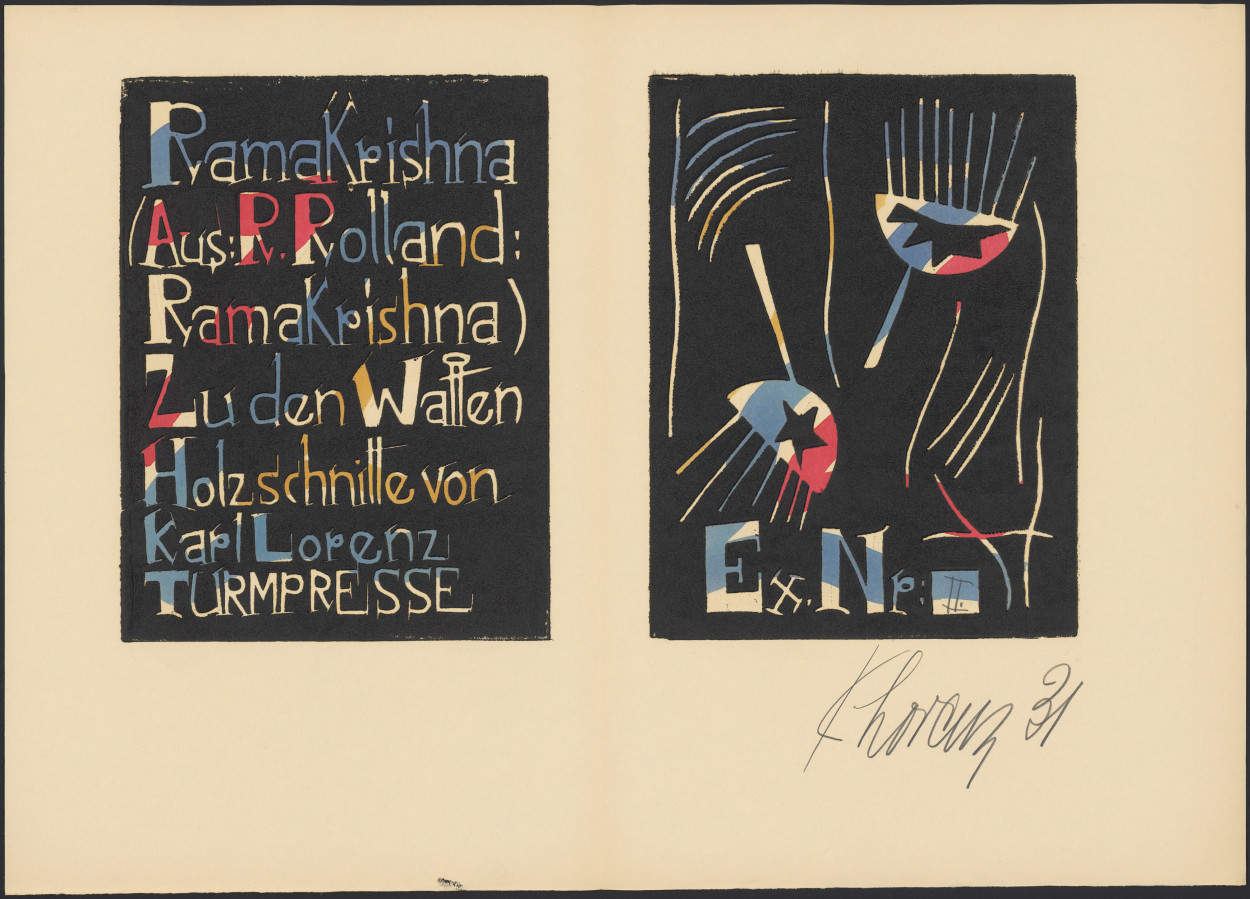 RamaKrishna
(Aus: R. Rolland:
RamaKrishna)
Zu den Watten
Holzschnitte von
Karl Lorenz
TURMPRESSE
Ex. Nr: II.
KLorenz 31